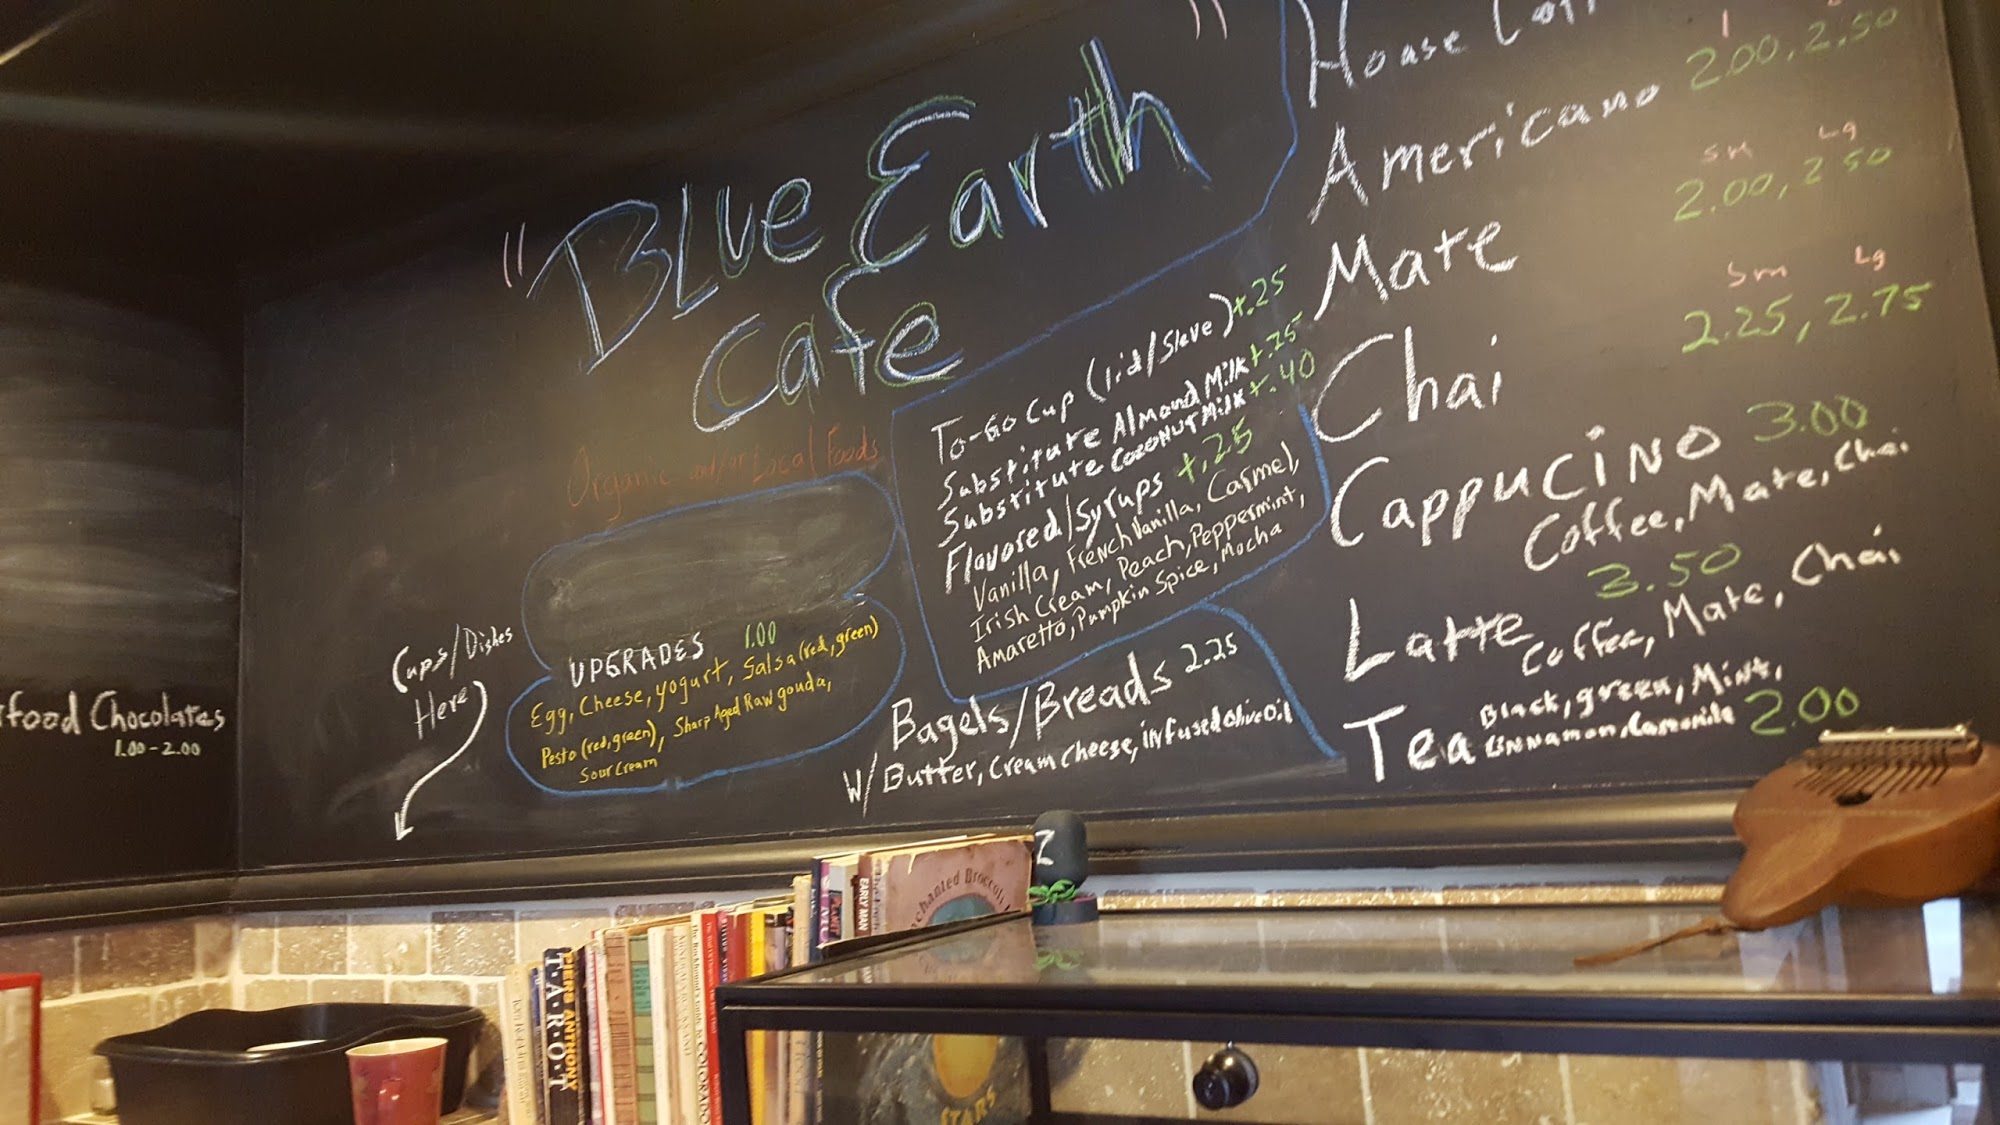 "Blue Earth"
Cafe
Organic and/or Local Foods
To-Go Cup (lid/Sleve) +.25
Substitute Almond Milk +.25
Substitute Coconut Milk +.40
Flavored/Syrups +.25
Vanilla, French Vanilla, Carmel,
Irish Cream, Peach, Peppermint,
Amaretto, Pumpkin Spice, Mocha
UPGRADES 1.00
Egg, Cheese, Yogurt, Salsa (red, green)
Pesto (red, green), Sharp Aged Raw gouda,
Sour Cream
Bagels/Breads 2.25
W/ Butter, Cream Cheese, infused Olive Oil
Cups/Dishes
Here
food Chocolates
1.00-2.00
House
2.00, 2.50
Americano
Sm Lg
2.00, 2.50
Mate
Sm Lg
2.25, 2.75
Chai
Cappucino 3.00
Coffee, Mate, Chai
3.50
Latte
Coffee, Mate, Chai,
Tea Black, green, Mint,
Cinnamon, Camomile 2.00
PIERS ANTHONY
T·A·R·O·T
COLORADO
EARLY MAN
PLANET
Enchanted Broccoli
Z
STARS